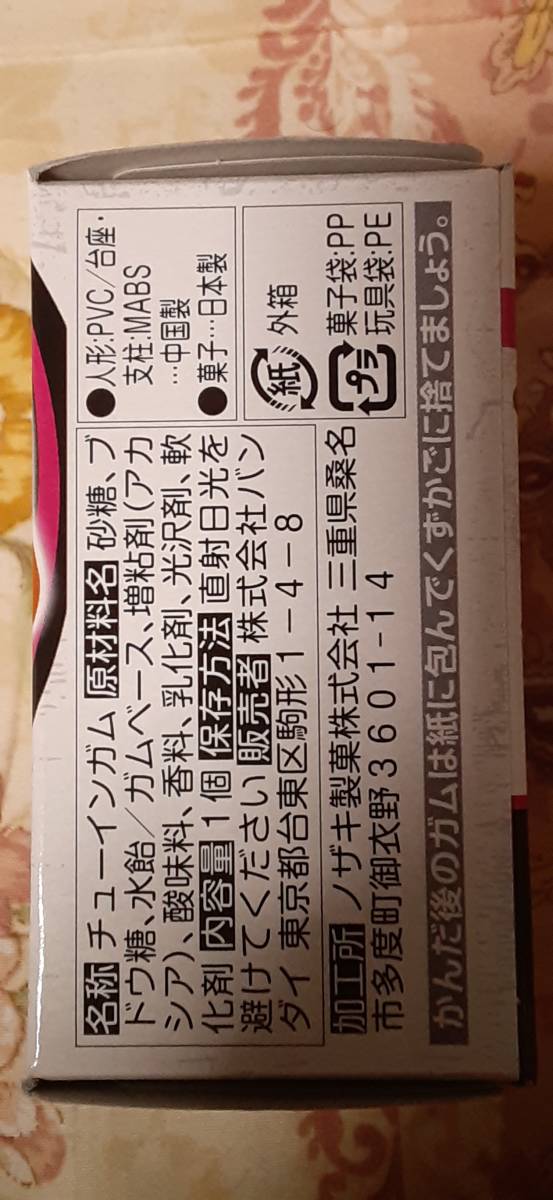 名称 チューインガム 原材料名 砂糖、ブ
ドウ糖、水飴/ガムベース、増粘剤(アカ
シア)、酸味料、香料、乳化剤、光沢剤、軟
化剤 内容量 1個 保存方法 直射日光を
避けてください 販売者 株式会社バン
ダイ 東京都台東区駒形1-4-8
加工所 ノザキ製菓株式会社 三重県桑名
市多度町御衣野3601-14
●人形:PVC/台座・
支柱:MABS
…中国製
●菓子…日本製
紙 外箱
プラ 菓子袋:PP
玩具袋:PE
かんだ後のガムは紙に包んでくずかごに捨てましょう。